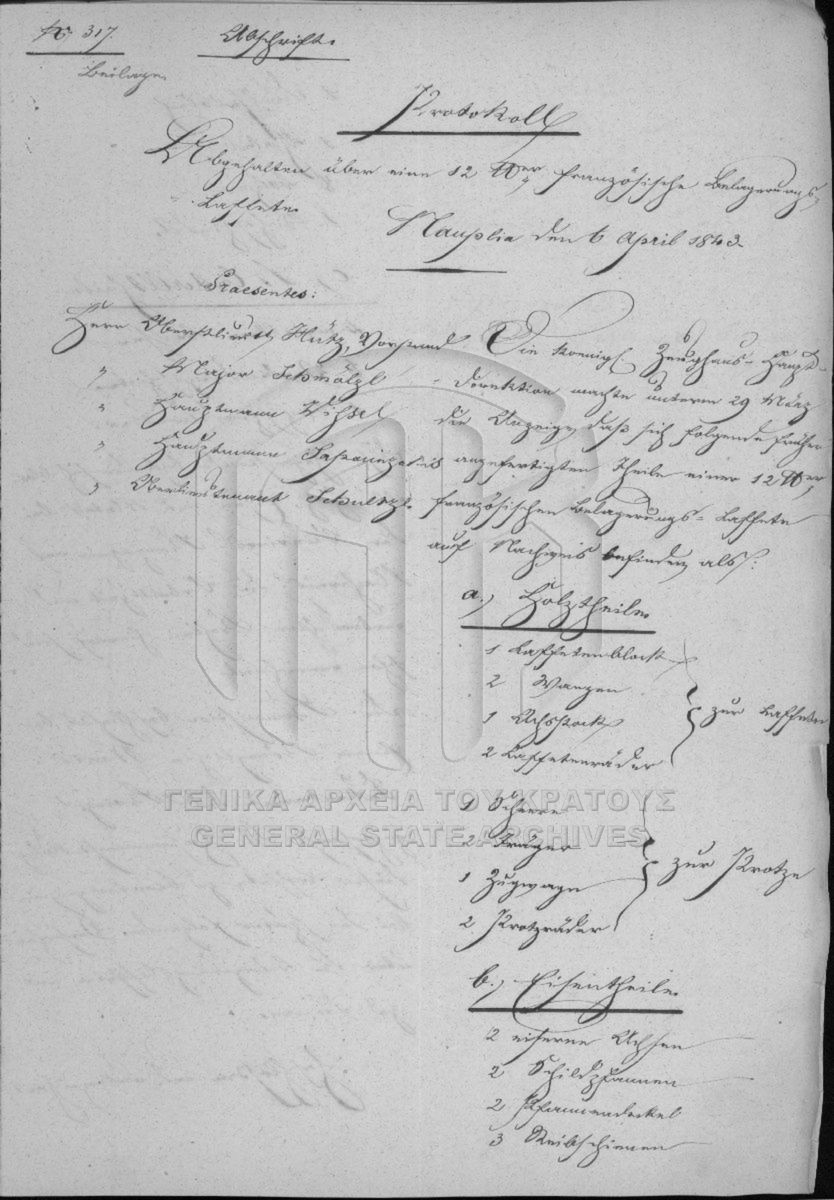 No 317.
Abschrift.
Beilage.
Protokoll
Abgehalten über eine 12 ℔er französische Belagerungs-
Laffete.
Nauplia den 6 April 1843.
Praesentes:
Herr Oberstlieutt Hütz, Vorstand
" Major Schmölzl
" Hauptmann
" Hauptmann
" Oberlieutenant Schultze.
Die koenigl. Zeughaus-Haupt-
Direktion machte unterm 29 März
die Anzeige, daß sich folgende früher
angefertigten Theile einer 12 ℔er
französischen Belagerungs-Laffete
auf Nachweis befinden, als:
a.) Holztheile.
1 Laffetenblock
2 Wangen
1 Achsstock
2 Laffetenräder
zur Laffete
1 Scheere
2 Träger
1 Zugwage
2 Protzräder
zur Protze
b.) Eisentheile.
2 eiserne Achsen
2 Schildpfannen
2 Pfannendeckel
3 Reibschienen
ΓΕΝΙΚΑ ΑΡΧΕΙΑ ΤΟΥ ΚΡΑΤΟΥΣ
GENERAL STATE ARCHIVES